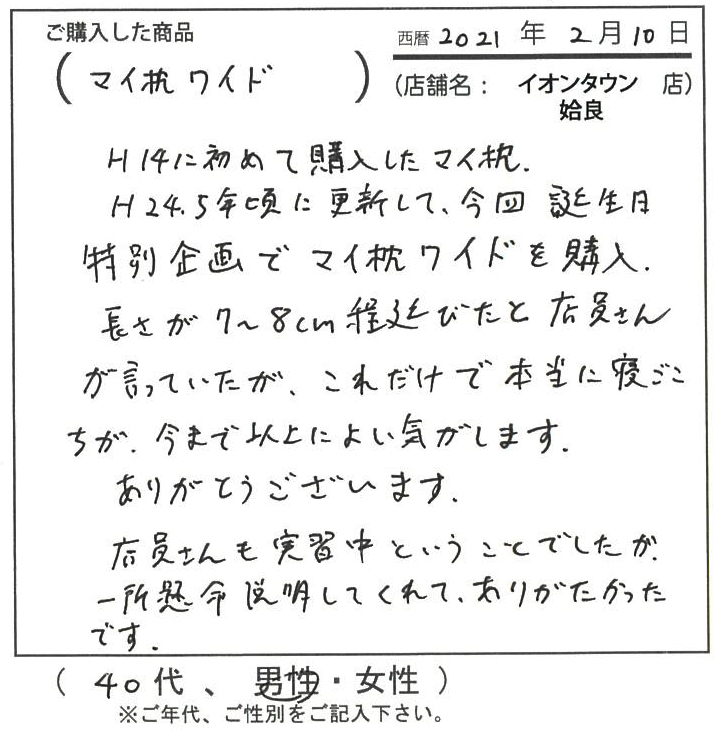 ご購入した商品
西暦 2021 年 2月10日
(マイ枕ワイド)
(店舗名： イオンタウン姶良 店)
H14に初めて購入したマイ枕.
H24.5年頃に更新して、今回 誕生日
特別企画でマイ枕ワイドを購入.
長さが7〜8cm程延びたと店員さん
が言っていたが、これだけで本当に寝ごこ
ちが、今まで以上によい気がします.
ありがとうございます.
店員さんも実習中ということでしたが、
一所懸命説明してくれて、ありがたかった
です.
(40代、男性・女性)
※ご年代、ご性別をご記入下さい。